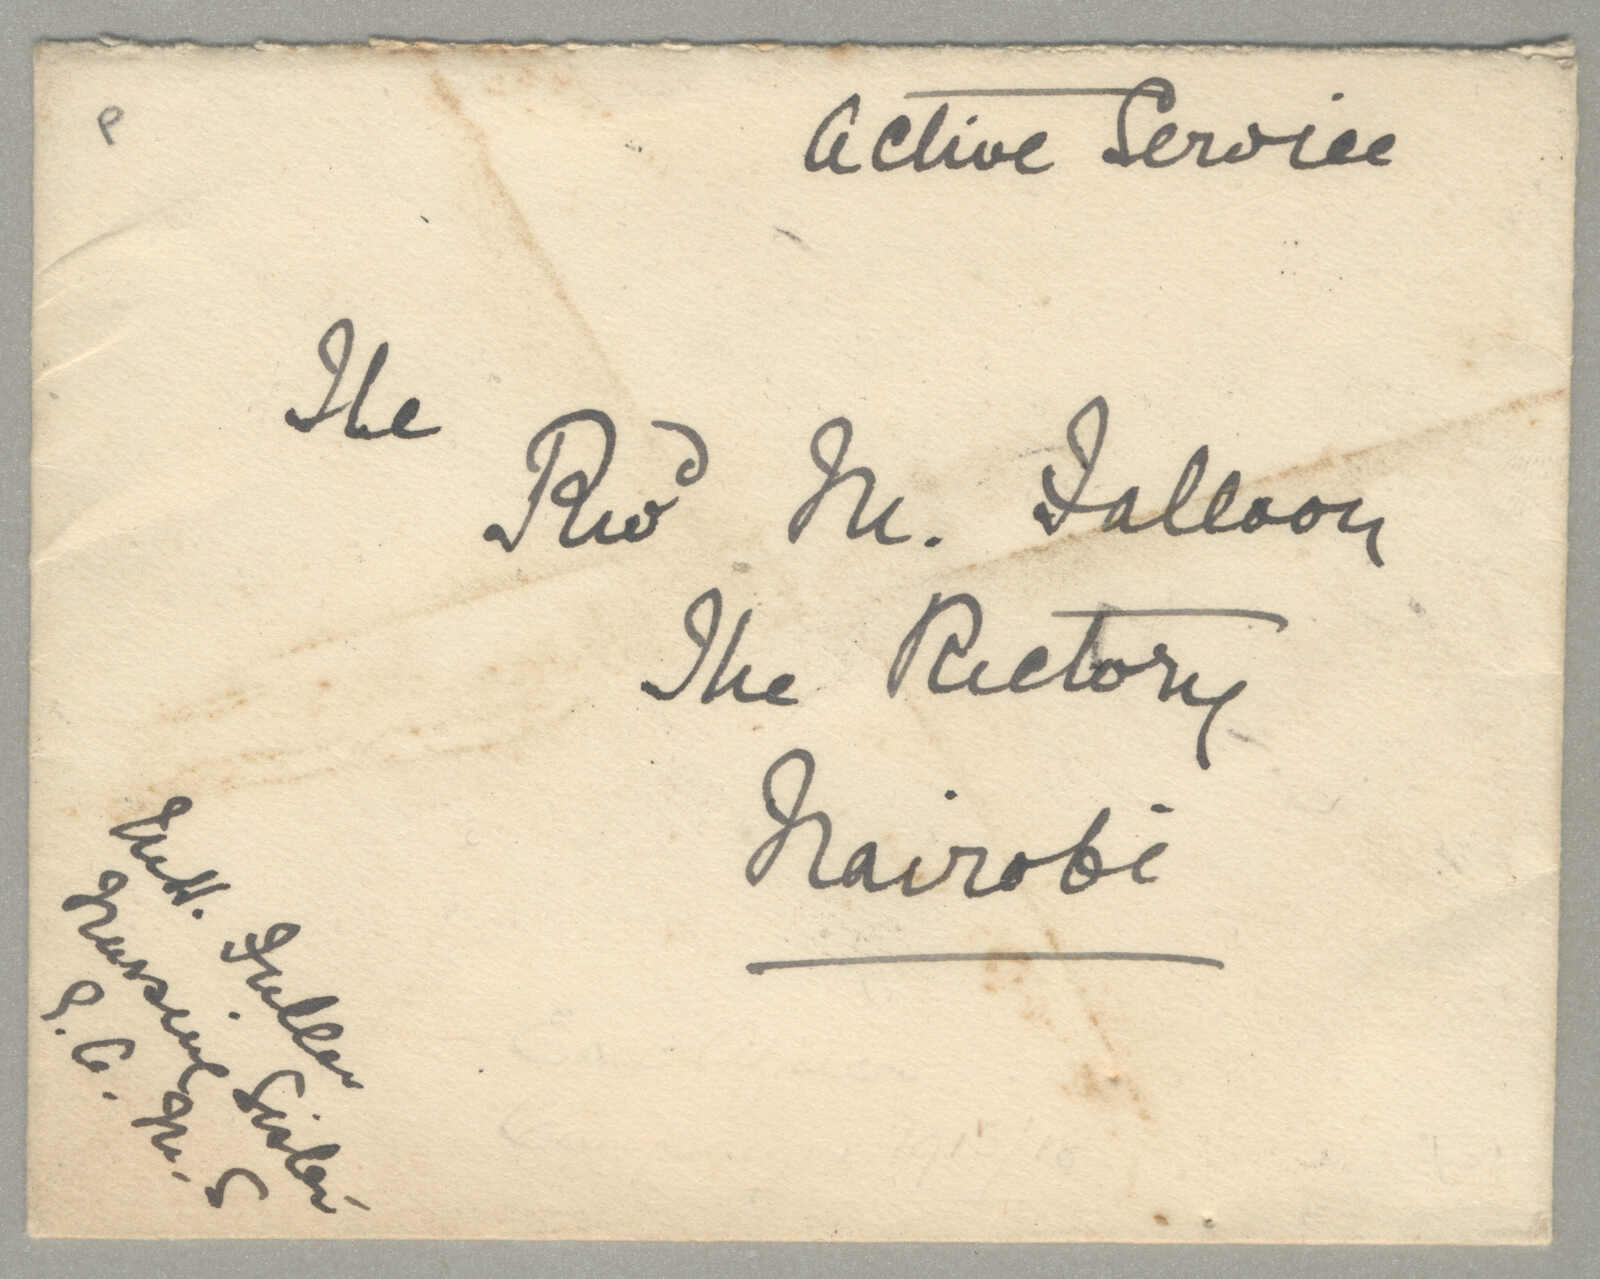 Active Service
The
Revd M. Falloon
The Rectory
Nairobi
Fuller
Nursing Sister
E. A. M. S